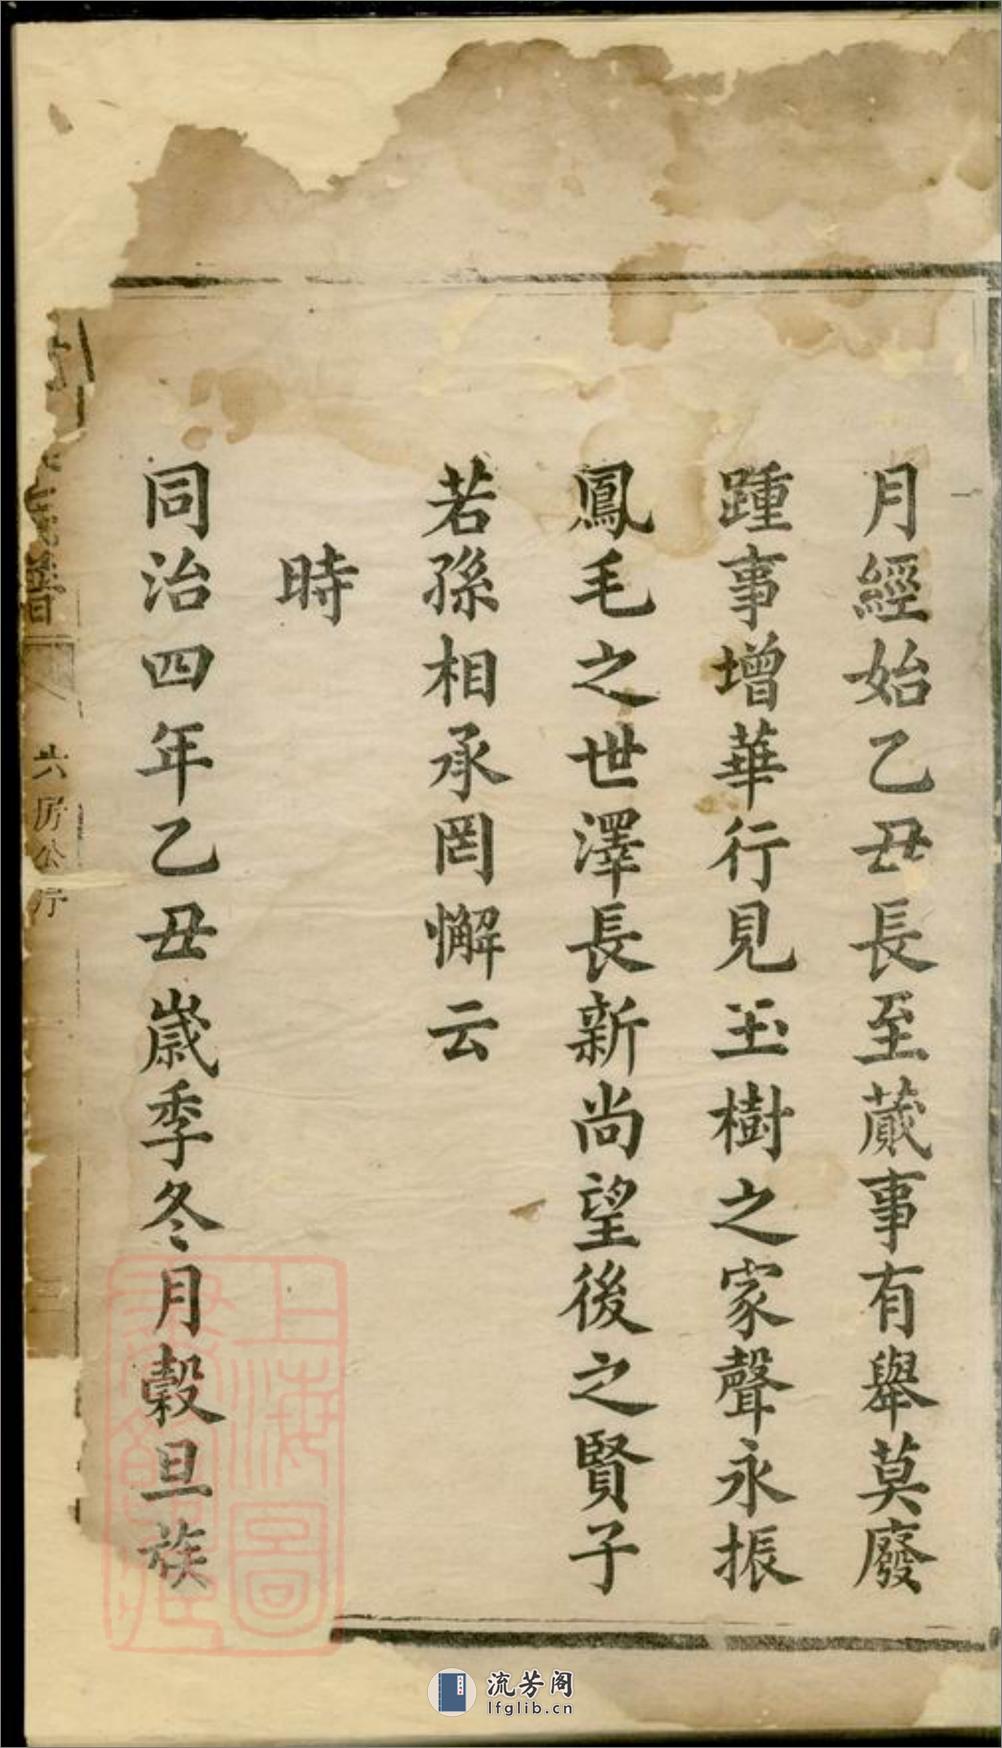 月經始乙丑長至蕆事有舉莫廢
踵事增華行見玉樹之家聲永振
鳳毛之世澤長新尚望後之賢子
若孫相承罔懈云
時
同治四年乙丑歲季冬月穀旦族
譜
六房公行
上海圖
流芳阁
lfglib.cn